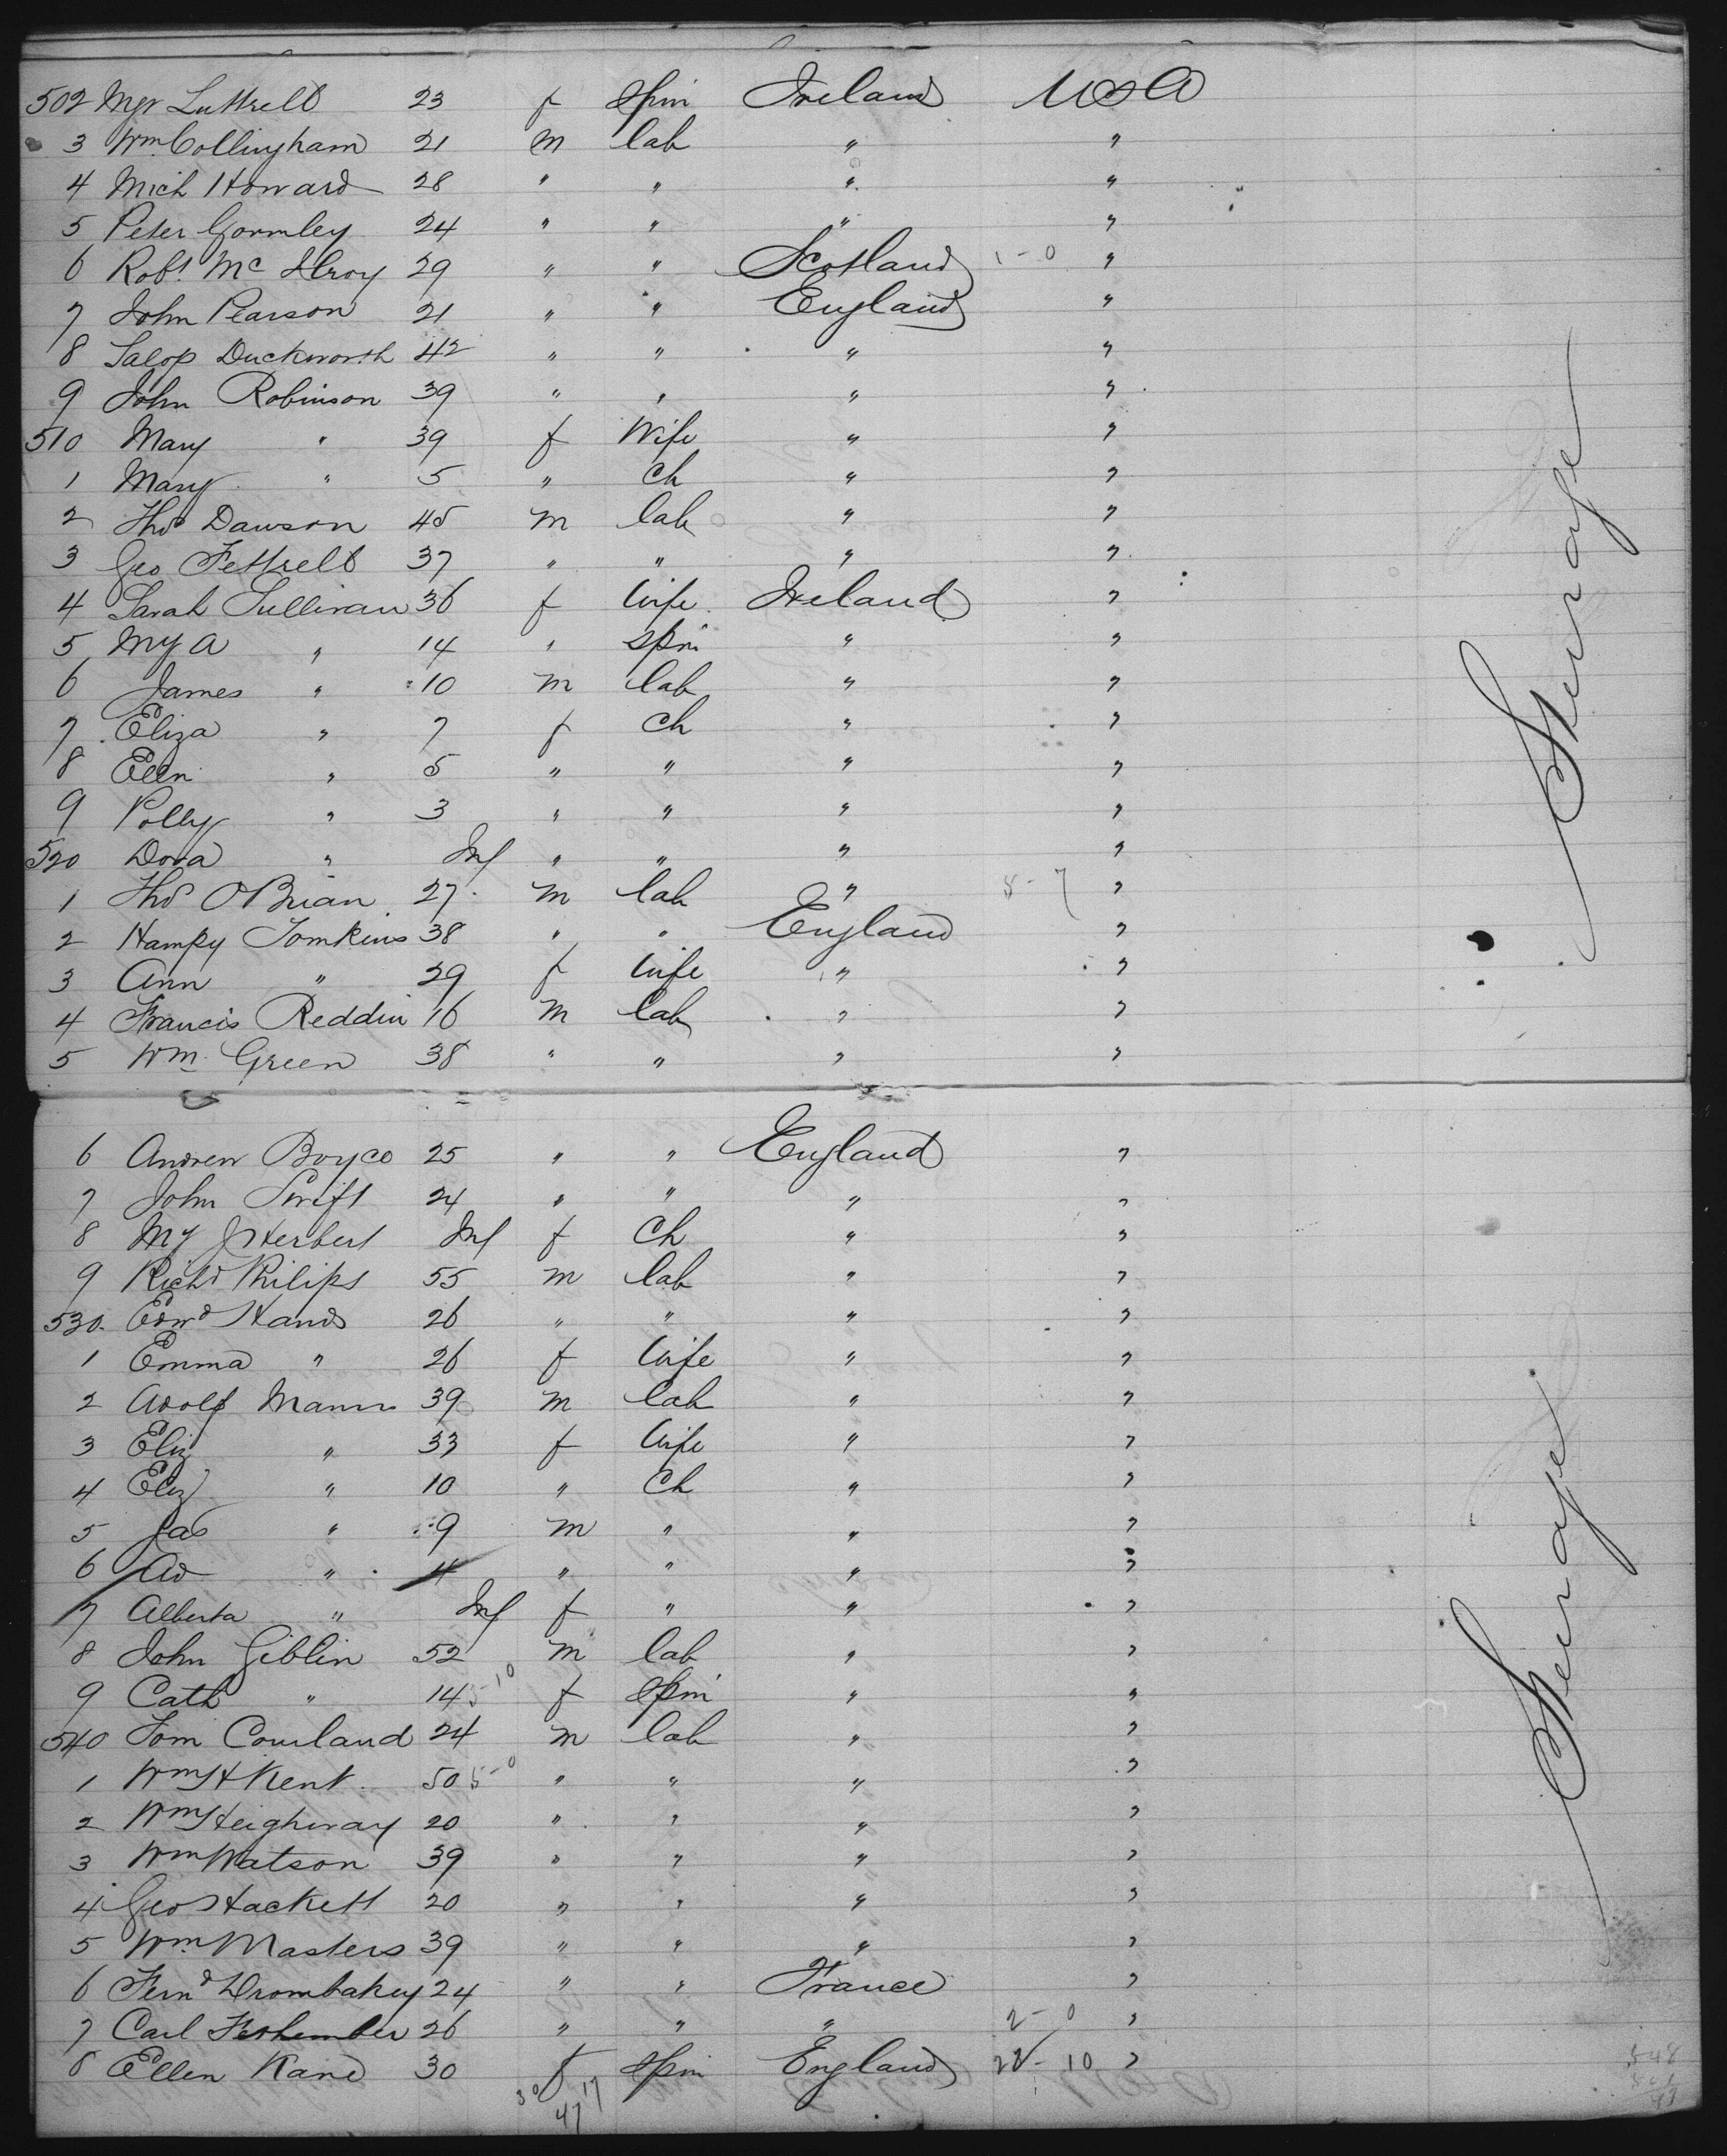 502 Mgr Luttrell 23 f Spin Ireland USA
3 Wm Collingham 21 m lab " "
4 Mich Howard 28 " " " "
5 Peter Gormley 24 " " " "
6 Robt Mc Ilroy 29 " " Scotland 1-0 "
7 John Pearson 21 " " England "
8 Salop Duckworth 42 " " " "
9 John Robinson 39 " " " "
510 Mary " 39 f Wife " "
1 Mary " 5 " Ch " "
2 Thos Dawson 45 m lab " "
3 Geo Fettrell 37 " " " "
4 Sarah Sullivan 36 f Wife Ireland "
5 My A " 14 " Spin " "
6 James " 10 m lab " "
7 Eliza " 7 f Ch " "
8 Ellen " 5 " " " "
9 Polly " 3 " " " "
520 Dora " Inf " " " "
1 Thos O'Brian 27 m lab " 8-7 "
2 Hampy Tomkins 38 " " England "
3 Ann " 29 f Wife " "
4 Francis Reddin 16 m lab " "
5 Wm Green 38 " " " "
Steerage
6 Andrew Boyco 25 " " England "
7 John Swift 24 " " " "
8 My J Herbert Inf f Ch " "
9 Richd Philips 55 m lab " "
530. Edwd Hands 26 " " " "
1 Emma " 26 f Wife " "
2 Adolf Manns 39 m lab " "
3 Eliz " 33 f Wife " "
4 Eliz " 10 " Ch " "
5 Jas " 9 m " " "
6 Ad " 4 " " " "
7 Alberta " Inf f " " "
8 John Giblin 52 m lab " "
9 Cath " 14 5-10 f Spin " "
540 Tom Courland 24 m lab " "
1 Wm H Kent 50 5-0 " " " "
2 Wm Heighway 20 " " " "
3 Wm Watson 39 " " " "
4 Geo Hackett 20 " " " "
5 Wm Masters 39 " " " "
6 Fernd Drombakey 24 " " France "
7 Carl 26 " " " 2-0 "
8 Ellen Kane 30 f Spin England 22-10 "
30 17
47
Steerage
548
501
47